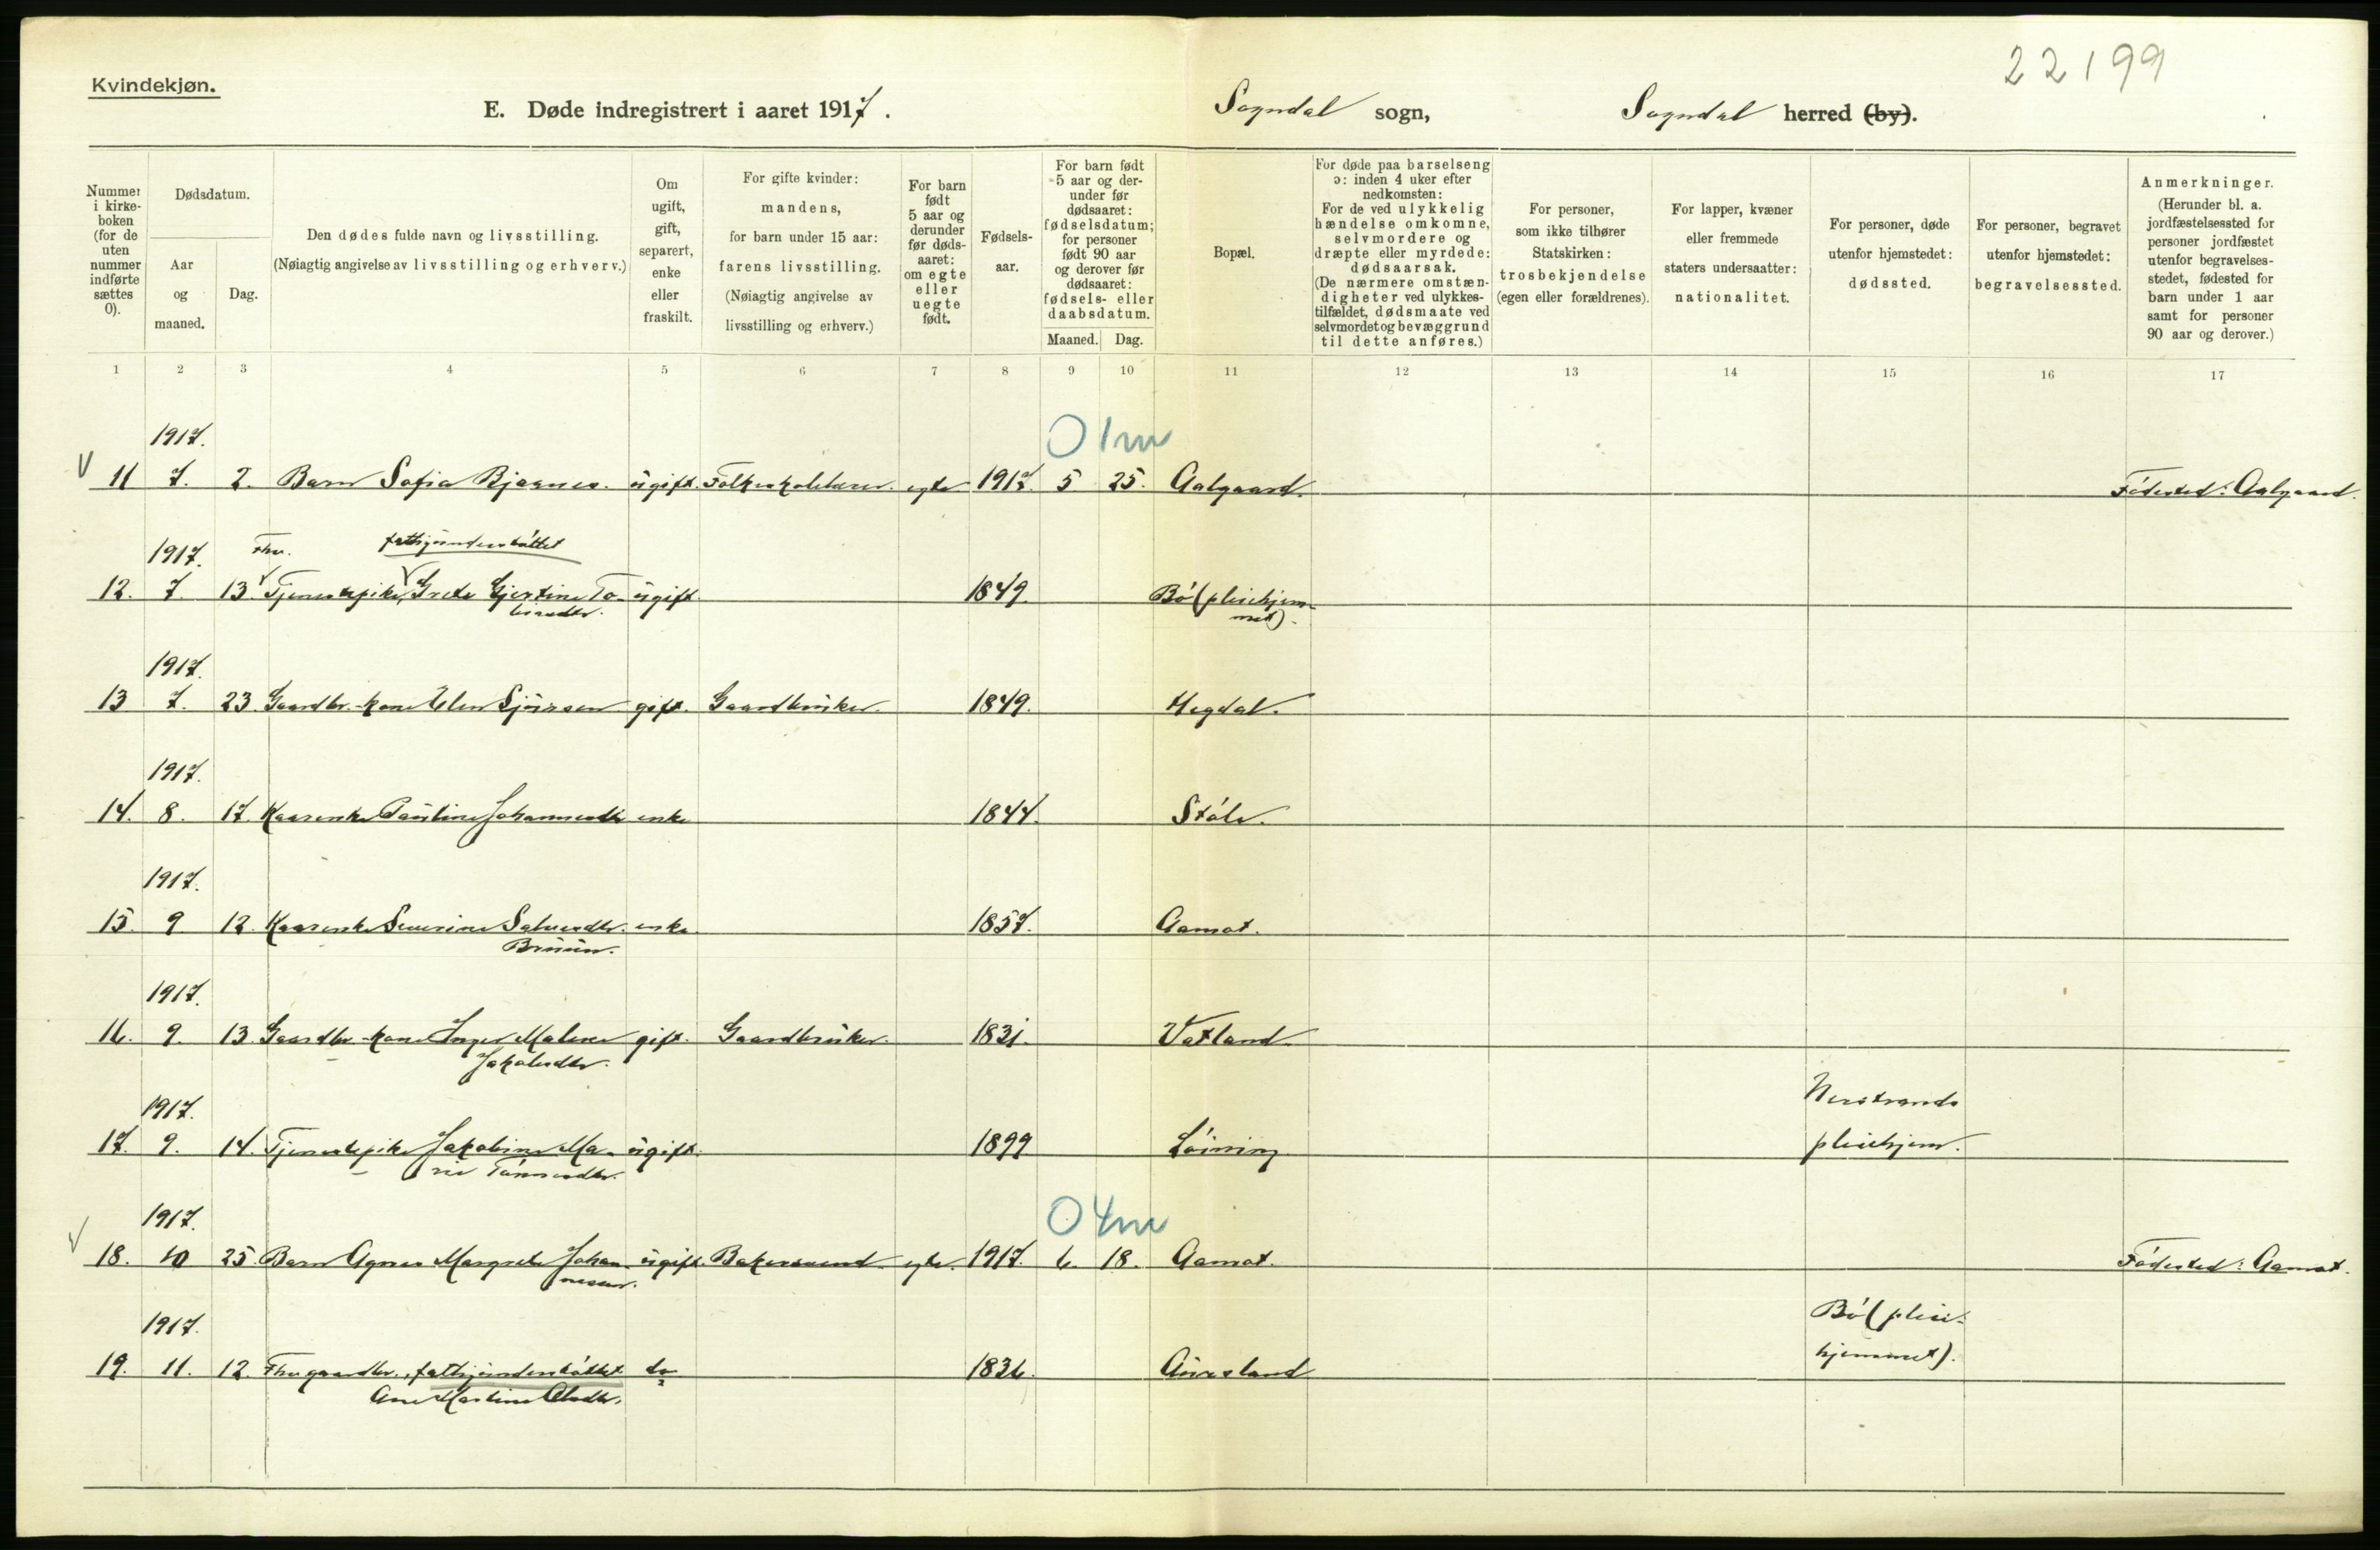 22199
Kvindekjøn.
E. Døde indregistrert i aaret 1917.
Sogndal sogn,
Sogndal herred (by).
Nummer i kirke-boken (for de uten nummer indførte sættes 0).
Dødsdatum.
Aar og maaned.
Dag.
Den dødes fulde navn og livsstilling.
(Nøiagtig angivelse av livsstilling og erhverv.)
Om ugift, gift, separert, enke eller fraskilt.
For gifte kvinder: mandens, for barn under 15 aar: farens livsstilling. (Nøiagtig angivelse av livsstilling og erhverv.)
For barn født 5 aar og derunder før døds-aaret: om egte eller uegte født.
Fødsels-aar.
For barn født 5 aar og der-under før dødsaaret: fødselsdatum; for personer født 90 aar og derover før dødsaaret: fødsels- eller daabsdatum.
Maaned. Dag.
Bopæl.
For døde paa barselseng ɔ: inden 4 uker efter nedkomsten: For de ved ulykkelig hændelse omkomne, selvmordere og dræpte eller myrdede: dødsaarsak. (De nærmere omstæn-digheter ved ulykkes-tilfældet, dødsmaate ved selvmordet og bevæggrund til dette anføres.)
For personer, som ikke tilhører Statskirken: trosbekjendelse (egen eller forældrenes).
For lapper, kvæner eller fremmede staters undersaatter: nationalitet.
For personer, døde utenfor hjemstedet: dødssted.
For personer, begravet utenfor hjemstedet: begravelsessted.
Anmerkninger. (Herunder bl. a. jordfæstelsessted for personer jordfæstet utenfor begravelses-stedet, fødested for barn under 1 aar samt for personer 90 aar og derover.)
1 2 3 4 5 6 7 8 9 10 11 12 13 14 15 16 17
1917. 0 1m
V 11 7. 2. Barn Sofia Bjarnes. ugift. Folkeskolelærer egte 1917. 5 25. Aalgaard. Fødested: Aalgaard.
1917. Fhv. fattigunderstøttet
12. 7. 13. Tjenestepike, Grete Gjertine To- ugift. 1849. Bø (pleiehjem-
met).
1917.
13 7. 23. Gaardbr.-kone Elen Sjursen gift. Gaardbruker. 1849. Hegdal.
1917.
14. 8. 17. Kaarenke Pauline Johannesdtr enke 1844. Støle.
1917.
15. 9. 12. Kaarenke Severine Salvesdtr. enke 1857. Aamot.
Bruun.
1917.
16. 9. 13. Gaardbr.-kone Inger Malene gift. Gaardbruker. 1831. Vatland.
Jakobsdtr.
1917. Nerstrands
17. 9. 14. Tjenestepike Jakobine Ma- ugift. 1899 Løining pleiehjem.
rie Tønnesdtr.
1917. 0 4m
V 18. 10 25. Barn Agnes Margrete Johan- ugift. Bakersvend egte. 1917. 6. 18. Aamot. Fødested: Aamot.
nesen.
1917. Bø (pleie-
19. 11. 12. Fhv. gaardbr., fattigunderstøttet do 1836. Aursland hjemmet).
Ane Martine Olsdtr.